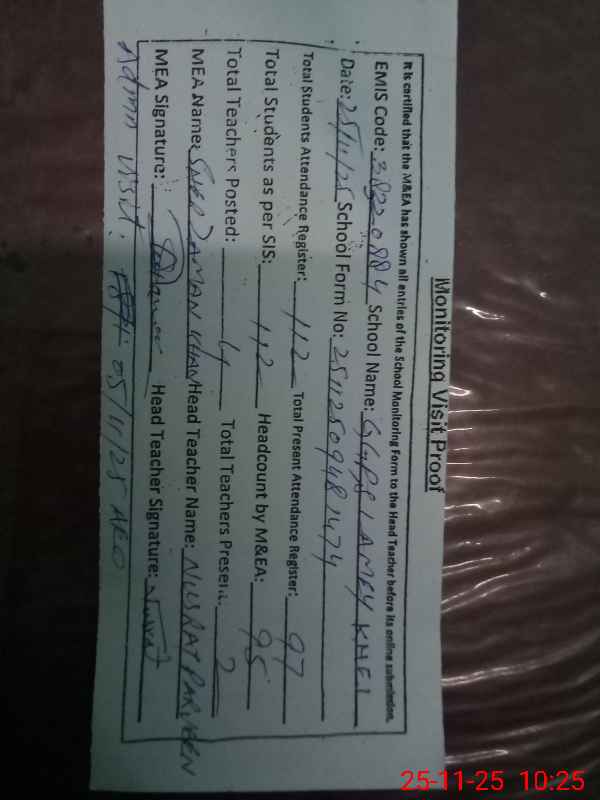 Monitoring Visit Proof
It is certified that the M&EA has shown all entries of the School Monitoring Form to the Head Teacher before its online submission.
EMIS Code: 38220884 School Name: GGPS LAMEY KHEL
Date: 25/11/25 School Form No: 25112509481474
Total Students Attendance Register: 112 Total Present Attendance Register: 97
Total Students as per SIS: 112 Headcount by M&EA: 95
Total Teachers Posted: 4 Total Teachers Present: 2
MEA Name: SHER ZAMAN KHAN Head Teacher Name: NUSRAT PARVEEN
MEA Signature: Head Teacher Signature: Nusrat
Admn Visit: 05/11/25 AEO
25-11-25 10:25